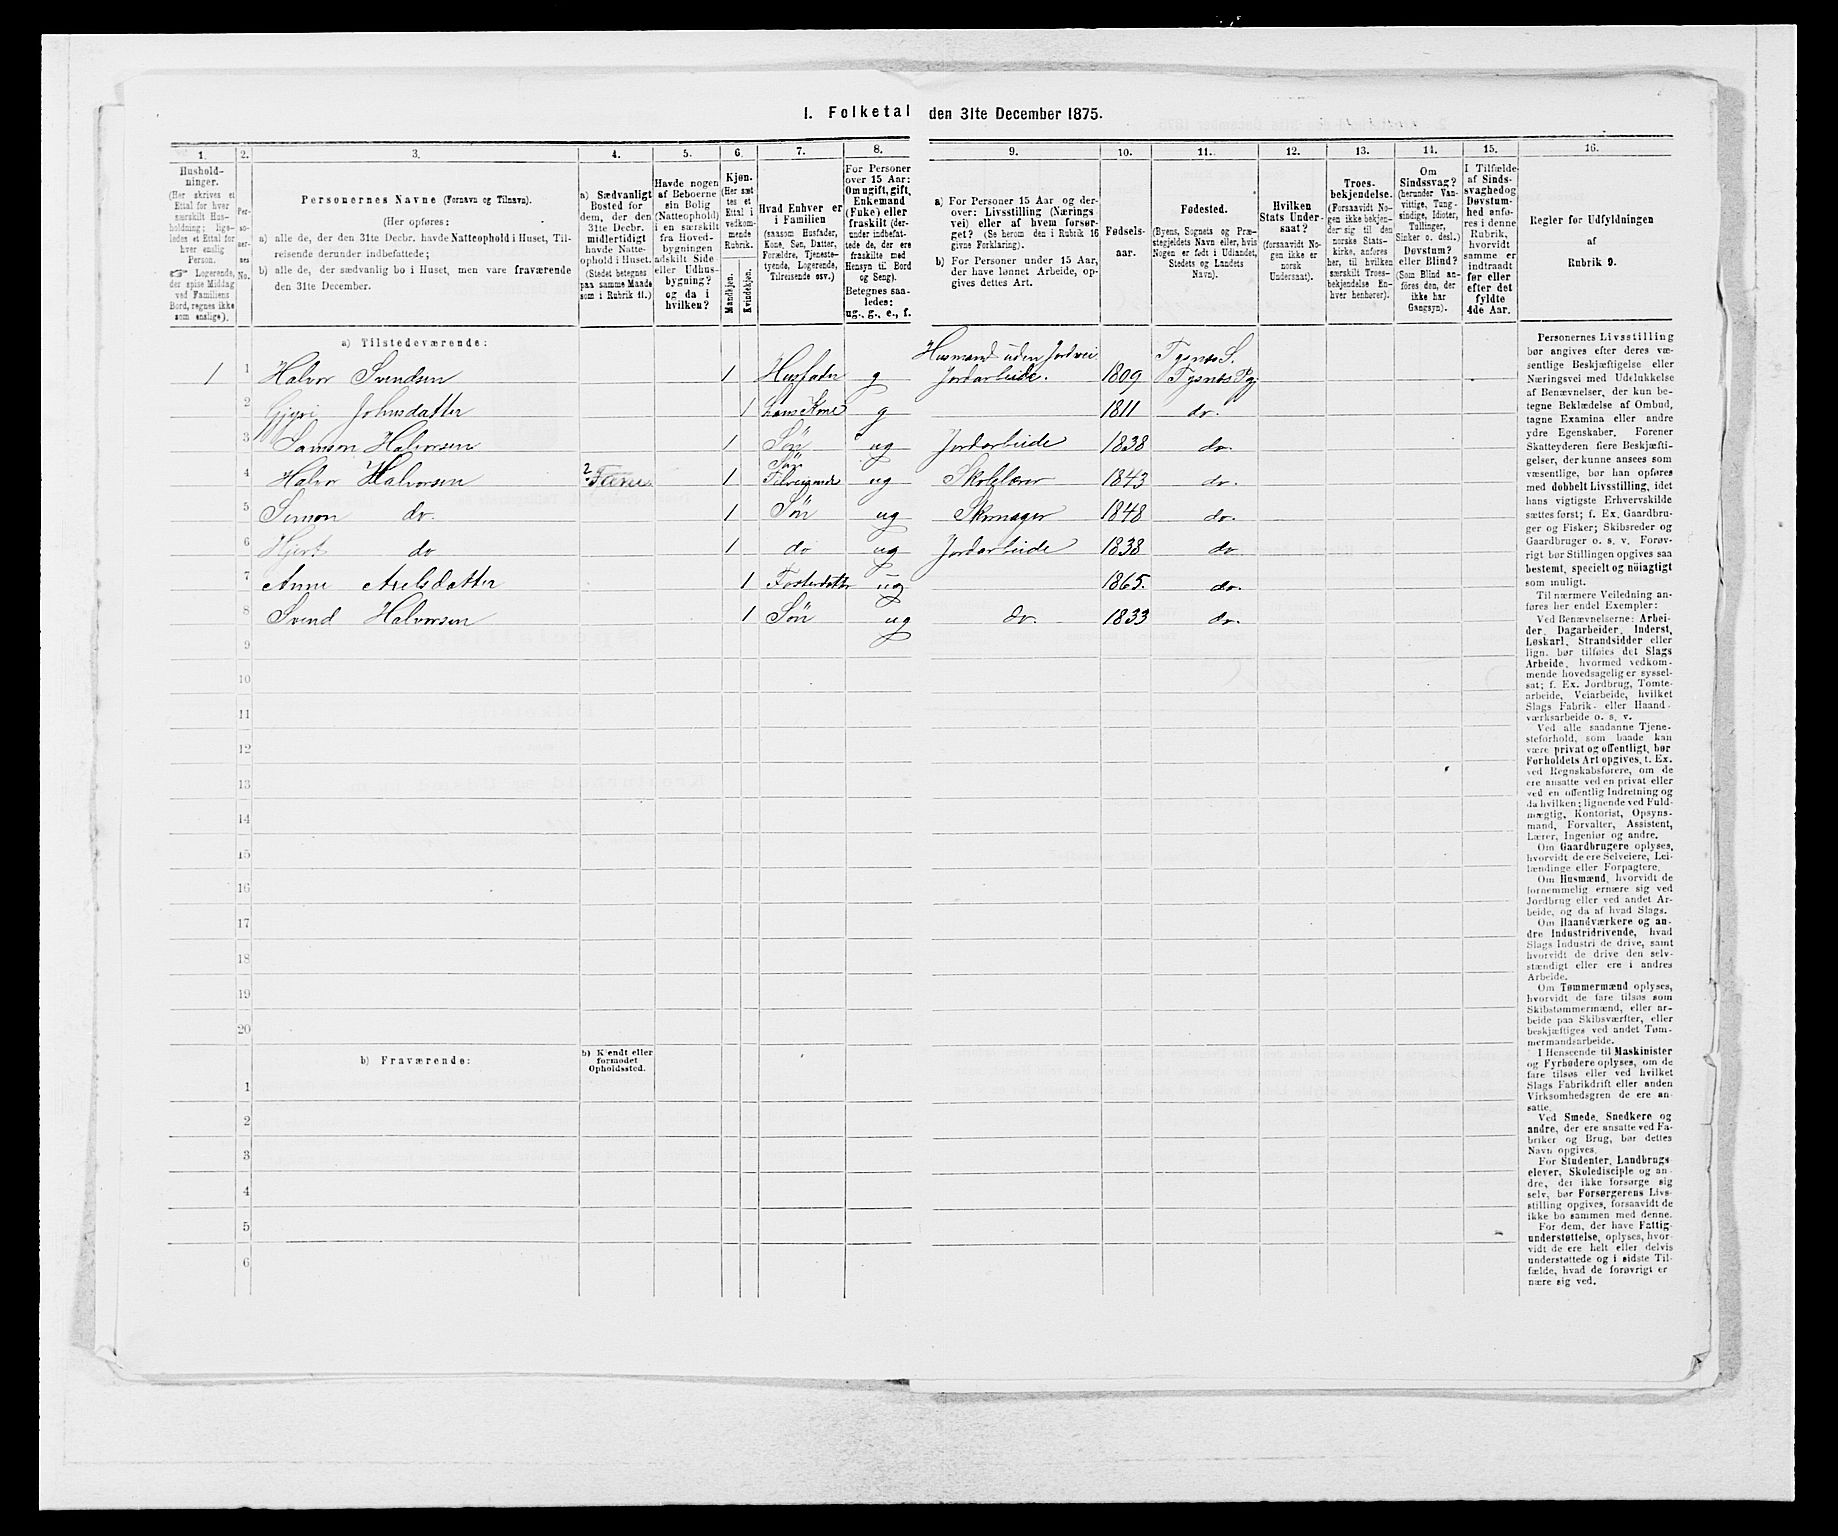 I. Folketal den 31te December 1875.
1. 2. 3. 4. 5. 6. 7. 8. 9. 10. 11. 12. 13. 14. 15. 16.
Hushold-
ninger.
(Her skrives et
Ettal for hver
særskilt Hus-
holdning; lige-
ledes et Ettal for
hver enslig
Person.
☞ Logerende,
der spise Middag
ved Familiens
Bord, regnes ikke
som enslige).
Per-
so-
ner-
nes
No.
Personernes Navne (Fornavn og Tilnavn).
(Her opføres:
a) alle de, der den 31te Decbr. havde Natteophold i Huset, Til-
reisende derunder indbefattede;
b) alle de, der sædvanlig bo i Huset, men vare fraværende
den 31te December.
a) Sædvanligt
Bosted for
dem, der den
31te Decbr.
midlertidigt
havde Natte-
ophold i Huset.
(Stedet betegnes
paa samme Maade
som i Rubrik 11.)
Havde nogen
af Beboerne
sin Bolig
(Natteophold)
i en særskilt
fra Hoved-
bygningen
adskilt Side
eller Udhus-
bygning?
og da i
hvilken?
Kjøn.
(Her sæt
tes et
Ettal i
vedkom-
mende
Rubrik.
Mandkjøn.
Kvindekjøn.
Hvad Enhver er
i Familien
(saasom Husfader,
Kone, Søn, Datter,
Forældre, Tjeneste-
tyende, Logerende,
Tilreisende osv.)
For Personer
over 15 Aar:
Om ugift, gift,
Enkemand
(Enke) eller
fraskilt (der-
under indbefat-
tede de, der ere
fraskilte med
Hensyn til Bord
og Seng).
Betegnes saa-
ledes:
ug., g., e., f.
a) For Personer 15 Aar og der-
over: Livsstilling (Nærings
vei) eller af hvem forsør-
get? (Se herom den i Rubrik 16
givne Forklaring).
b) For Personer under 15 Aar,
der have lønnet Arbeide, op-
gives dettes Art.
Fødsels-
aar.
Fødested.
(Byens, Sognets og Præ-
stegjeldets Navn eller, hvis
Nogen er født i Udlandet,
Stedets og Landets
Navn).
Hvilken
Stats Under-
saat?
(forsaavidt No-
gen ikke er
norsk
Undersaat).
Troes-
bekjendelse.
(Forsaavidt No-
gen ikke bekjen-
der sig til den
norske Stats-
kirke, anføres
her, til hvilken
særskilt Troes-
bekjendelse En-
hver henhører).
Om
Sindssvag?
(herunder Van-
vittige, Tung-
sindige, Idioter,
Tullinger,
Sinker o. desl.)
Døvstum?
eller Blind?
(Som Blind an-
føres den, der
ikke har
Gangsyn).
I Tilfælde
af Sinds-
svaghed og
Døvstum-
hed anfø-
res i denne
Rubrik,
hvorvidt
samme er
indtraadt
før eller
efter det
fyldte
4de Aar.
Regler for Udfyldningen
af
Rubrik 9.
a) Tilstedeværende:
1 1 Halvor Svendsen 1 Husfader g Husmand uden Jordvei Jordarbeide. 1809 Tysnæs S. Tysnæs Pgj
2 Johnsdatter 1 hans Kone g 1811 do.
3 Samson Halvorsen 1 Søn ug Jordarbeide 1838 do.
4 Halvor Halvorsen 1 Søn ug Skolelærer 1843 do.
5 Simon do. 1 Søn ug Skomager 1848 do.
6 do 1 do ug Jordarbeide 1838 do
7 Anne Axelsdatter 1 Fosterdatter ug 1865. do.
8 Svend Halvorsen 1 Søn ug do. 1833 do.
9
10
11
12
13
14
15
16
17
18
19
20
b) Fraværende:
b) Kjendt eller
formodet
Opholdssted.
1
2
3
4
5
6
Personernes Livsstilling
bør angives efter deres væ-
sentlige Beskjæftigelse eller
Næringsvei med Udelukkelse
af Benævnelser, der kun be-
tegne Beklædelse af Ombud,
tagne Examina eller andre
ydre Egenskaber. Forener
Skatteyderen flere Beskjæfti-
gelser, der kunne ansees som
væsentlige, bør han opføres
med dobbelt Livsstilling, idet
hans vigtigste Erhvervskilde
sættes først; f. Ex. Gaardbru-
ger og Fisker; Skibsreder og
Gaardbruger o. s. v. Forøv-
rigt bør Stillingen opgives saa
bestemt, specielt og nøiagtigt
som muligt.
Til nærmere Veiledning an-
føres her endel Exempler:
Ved Benævnelserne: Arbei-
der, Dagarbeider, Inderst,
Løskarl, Strandsidder eller
lign. bør tilføies det Slags
Arbeide, hvormed vedkom-
mende hovedsagelig er syssel-
sat; f. Ex. Jordbrug, Tomte-
arbeide, Veiarbeide, hvilket
Slags Fabrik- eller Haand-
værksarbeide o. s. v.
Ved alle saadanne Tjene-
steforhold, som baade kan
være privat og offentligt, bør
Forholdets Art opgives, t. Ex.
ved Regnskabsførere, om de
ere ansatte ved en privat eller
ved en offentlig Indretning og
da hvilken; lignende ved Fuld-
mægtig, Kontorist, Opsyns-
mand, Forvalter, Assistent,
Lærer, Ingeniør og andre.
Om Gaardbrugere oplyses,
hvorvidt de ere Selveiere, Lei-
lændinge eller Forpagtere.
Om Husmænd, hvorvidt de
fornemmelig ernære sig ved
Jordbrug eller ved andet Ar-
beide, og da af hvad Slags.
Om Haandværkere og an-
dre Industridrivende, hvad
Slags Industri de drive, samt
hvorvidt de drive den selv-
stændigt eller ere i andres
Arbeide.
Om Tømmermænd oplyses,
hvorvidt de fare tilsøs som
Skibstømmermænd, eller ar-
beide paa Skibsværfter, eller
beskjæftiges ved andet Tøm-
mermandsarbeide.
I Henseende til Maskinister
og Fyrbødere oplyses, om de
fare tilsøs eller ved hvilket
Slags Fabrikdrift eller anden
Virksomhedsgren de ere an-
satte.
Ved Smede, Snedkere og
andre, der ere ansatte ved Fa-
briker og Brug, bør dettes
Navn opgives.
For Studenter, Landbrugs-
elever, Skoledisciple og an-
dre, der ikke forsørge sig
selv, bør Forsørgerens Livs-
stilling opgives, forsaavidt de
ikke bo sammen med denne.
For dem, der have Fattig-
understøttelse, oplyses, hvor-
vidt de ere helt eller delvis
understøttede og i sidste Til-
fælde, hvad de forøvrigt er
nære sig ved.